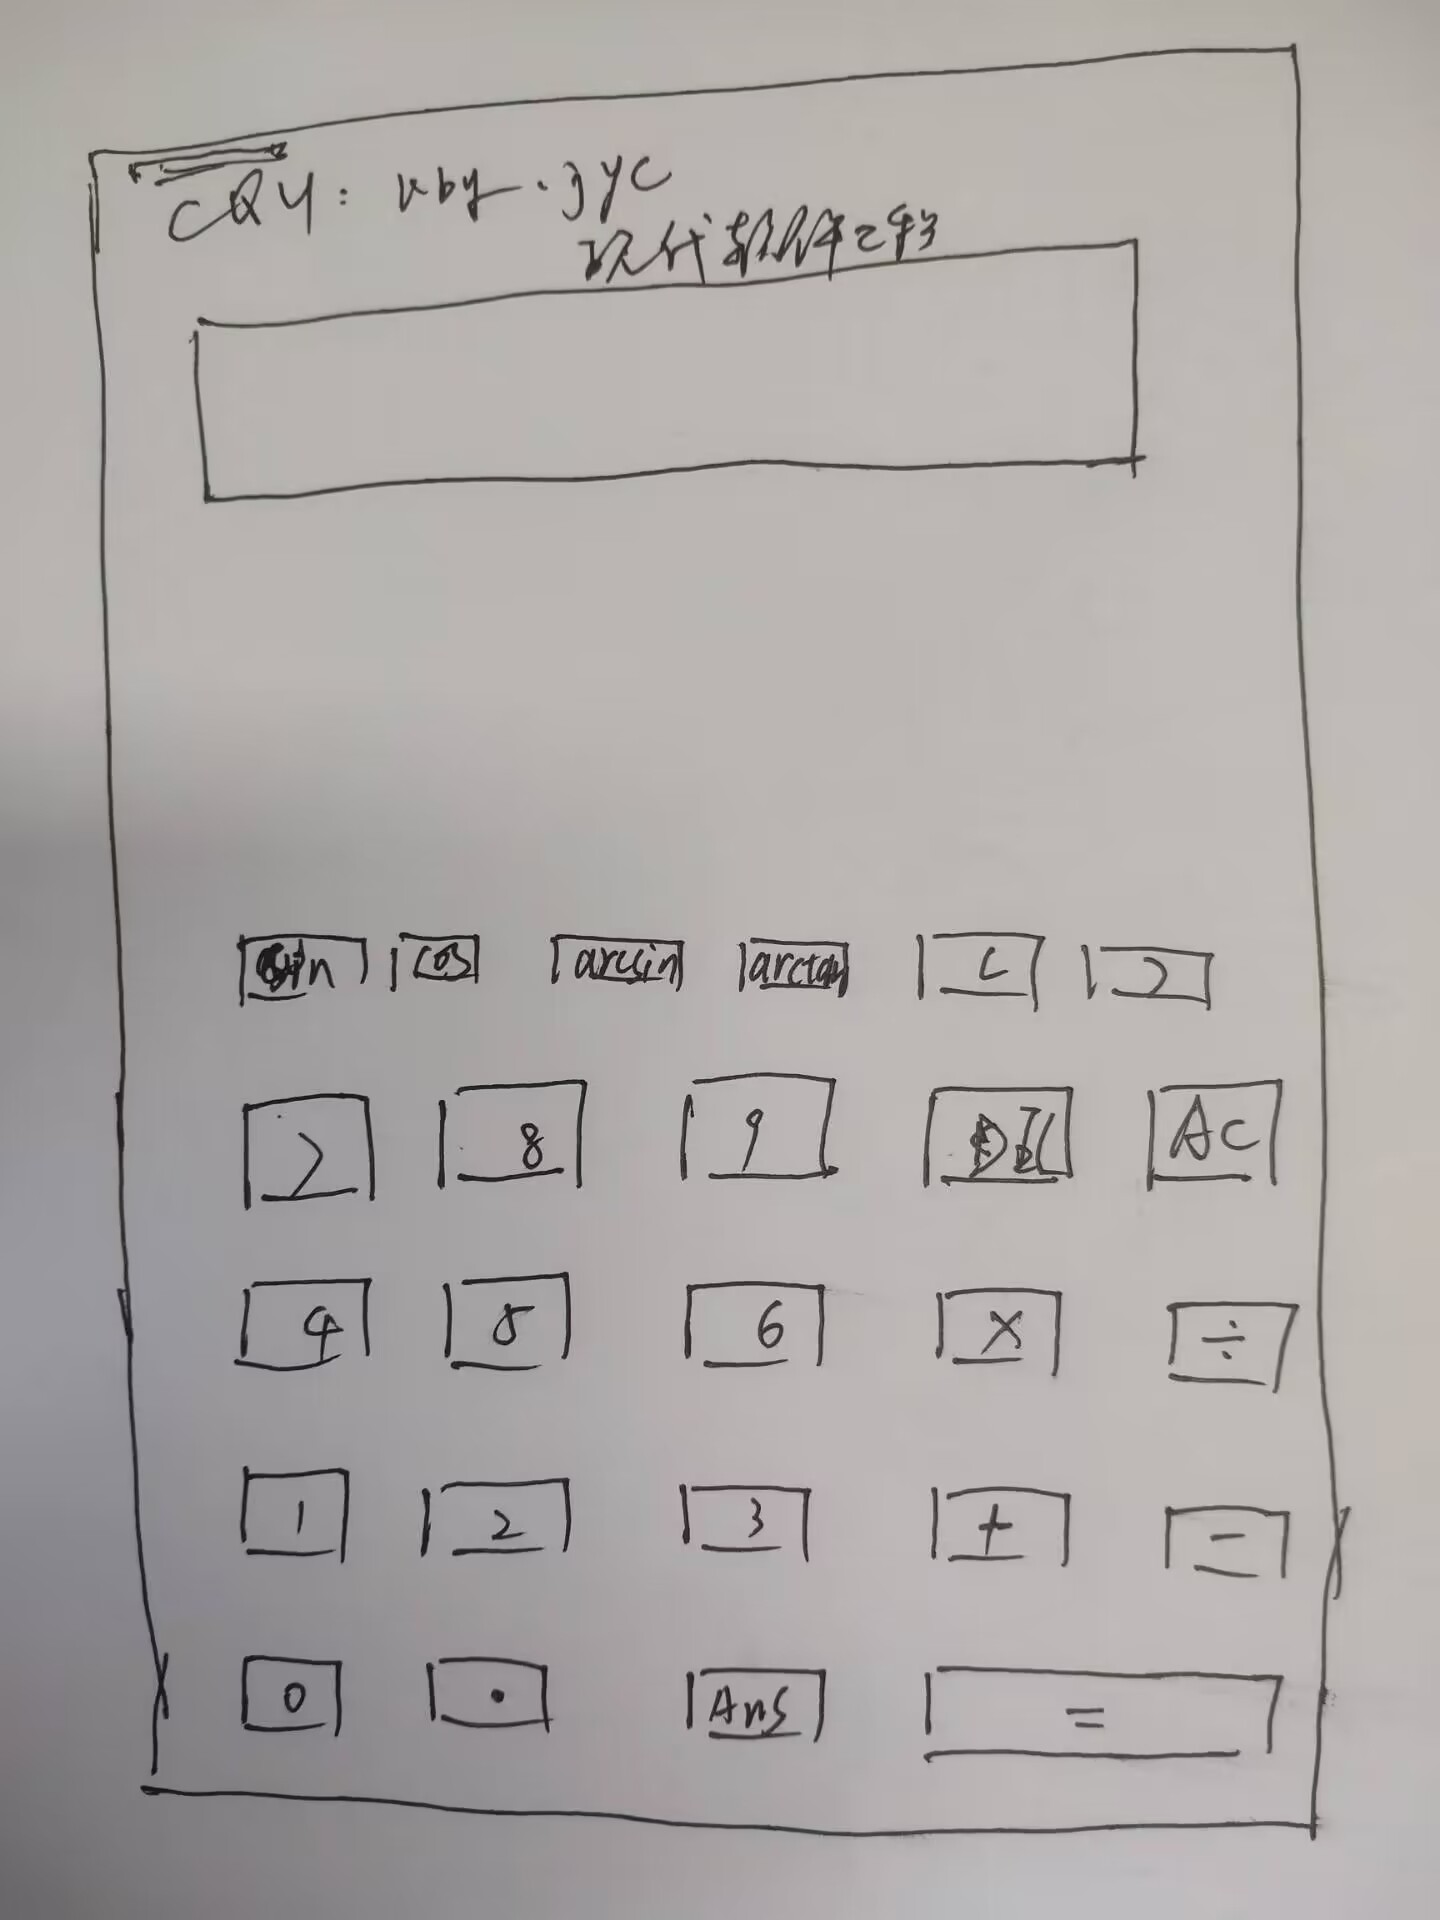 CQU: xby.zyc
现代软件工程
sin cos arcsin arctan ( )
7 8 9 DEL AC
4 5 6 × ÷
1 2 3 + −
0 . Ans =